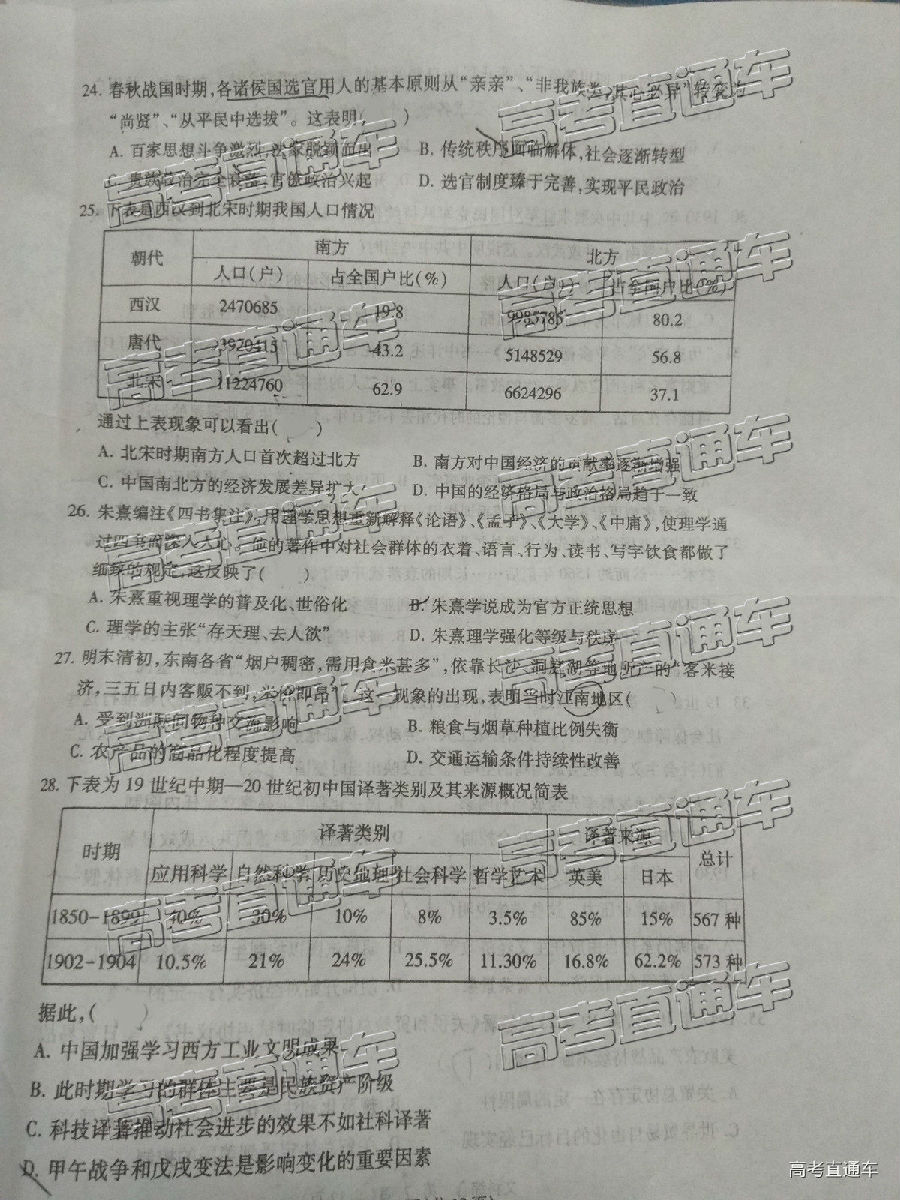 24. 春秋战国时期,各诸侯国选官用人的基本原则从“亲亲”、“非我族类,其心必异”转变为
“尚贤”、“从平民中选拔”。这表明( )
A. 百家思想斗争激烈,法家脱颖而出 B. 传统秩序面临解体,社会逐渐转型
C. 贵族政治完全衰落,官僚政治兴起 D. 选官制度臻于完善,实现平民政治
25. 下表是西汉到北宋时期我国人口情况
朝代 南方 北方
人口(户) 占全国户比(%) 人口(户) 占全国户比(%)
西汉 2470685 19.8 9985785 80.2
唐代 3920415 43.2 5148529 56.8
北宋 11224760 62.9 6624296 37.1
通过上表现象可以看出( )
A. 北宋时期南方人口首次超过北方 B. 南方对中国经济的贡献率逐渐增强
C. 中国南北方的经济发展差异扩大 D. 中国的经济格局与政治格局趋于一致
26. 朱熹编注《四书集注》,用理学思想重新解释《论语》、《孟子》、《大学》、《中庸》,使理学通
过四书而深入人心。他的著作中对社会群体的衣着、语言、行为、读书、写字饮食都做了
细致的规定,这反映了( )
A. 朱熹重视理学的普及化、世俗化 B. 朱熹学说成为官方正统思想
C. 理学的主张“存天理、去人欲” D. 朱熹理学强化等级与秩序
27. 明末清初,东南各省“烟户稠密,需用食米甚多”,依靠长沙、洞庭湖等地所产的“客米接
济,三五日内客贩不到,米价即昂”。这一现象的出现,表明当时江南地区( )
A. 受到洲际间物种交流影响 B. 粮食与烟草种植比例失衡
C. 农产品的商品化程度提高 D. 交通运输条件持续性改善
28. 下表为 19 世纪中期—20 世纪初中国译著类别及其来源概况简表
时期 译著类别 译著来源 总计
应用科学 自然科学 历史地理 社会科学 哲学艺术 英美 日本
1850-1899 40% 30% 10% 8% 3.5% 85% 15% 567 种
1902-1904 10.5% 21% 24% 25.5% 11.30% 16.8% 62.2% 573 种
据此,( )
A. 中国加强学习西方工业文明成果
B. 此时期学习的群体主要是民族资产阶级
C. 科技译著推动社会进步的效果不如社科译著
D. 甲午战争和戊戌变法是影响变化的重要因素
高考直通车